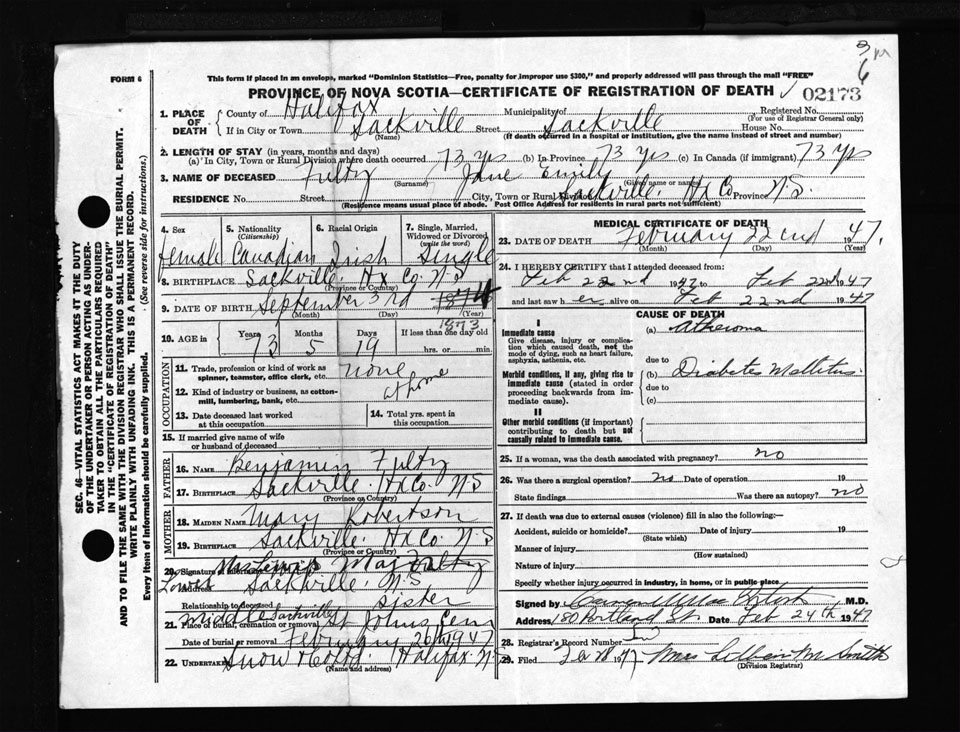 3 m
6
FORM 6
This form if placed in an envelope, marked "Dominion Statistics—Free, penalty for improper use $300," and properly addressed will pass through the mail "FREE"
PROVINCE OF NOVA SCOTIA—CERTIFICATE OF REGISTRATION OF DEATH
02173
1. PLACE OF DEATH
County of Halifax
Municipality of Sackville
Registered No.
(For use of Registrar General only)
If in City or Town Sackville Street
(Name)
House No.
(If death occurred in a hospital or institution, give the name instead of street and number)
2. LENGTH OF STAY (in years, months and days)
(a) In City, Town or Rural Division where death occurred 73 yrs (b) In Province 73 yrs (c) In Canada (if immigrant) 73 yrs
3. NAME OF DECEASED Fultz Jane Emily
(Surname) (Given name or names)
RESIDENCE No. Street City, Town or Rural Division Sackville Hx Co. Province N.S.
(Residence means usual place of abode. Post Office Address for residents in rural parts not sufficient)
4. Sex female
5. Nationality (Citizenship) Canadian
6. Racial Origin Irish
7. Single, Married, Widowed or Divorced (write the word) Single
8. BIRTHPLACE Sackville Hx Co. N.S
(Province or Country)
9. DATE OF BIRTH September 3rd 1874
1873
(Month) (Day) (Year)
10. AGE in Years 73 Months 5 Days 19 If less than one day old
hrs. or min.
OCCUPATION
11. Trade, profession or kind of work as spinner, teamster, office clerk, etc. none
12. Kind of industry or business, as cotton-mill, lumbering, bank, etc. at home
13. Date deceased last worked at this occupation
14. Total yrs. spent in this occupation
15. If married give name of wife or husband of deceased
FATHER
16. NAME Benjamin Fultz
17. BIRTHPLACE Sackville. Hx Co. N.S
(Province or Country)
MOTHER
18. MAIDEN NAME Mary Robertson
19. BIRTHPLACE Sackville. Hx Co. N.S
(Province or Country)
20. Signature of informant Fultz
Address Lower Sackville. N.S.
Relationship to deceased sister
21. Place of burial, cremation or removal Middle Sackville St Johns Cem
Date of burial or removal February 26 1947
22. UNDERTAKER Snow & Co Ltd. Halifax. N.S
(Name and address)
MEDICAL CERTIFICATE OF DEATH
23. DATE OF DEATH February 22nd 1947.
(Month) (Day) (Year)
24. I HEREBY CERTIFY that I attended deceased from:
Feb 22nd 1947 to Feb 22nd 1947
and last saw her alive on Feb 22nd 1947
CAUSE OF DEATH
I
Immediate cause
Give disease, injury or complication which caused death, not the mode of dying, such as heart failure, asphyxia, asthenia, etc.
(a) Atheroma
due to
Morbid conditions, if any, giving rise to immediate cause (stated in order proceeding backwards from immediate cause).
(b) Diabetes Mellitus
due to
(c)
II
Other morbid conditions (if important) contributing to death but not causally related to immediate cause.
25. If a woman, was the death associated with pregnancy? no
26. Was there a surgical operation? no Date of operation 19
State findings Was there an autopsy? no
27. If death was due to external causes (violence) fill in also the following:—
Accident, suicide or homicide? Date of injury 19
(State which)
Manner of injury
(How sustained)
Nature of injury
Specify whether injury occurred in industry, in home, or in public place
Signed by M.D.
Address 180 Portland St. Date Feb 24th 1947
28. Registrar's Record Number
29. Filed 1947 Mrs M Smith
(Division Registrar)
SEC. 46—VITAL STATISTICS ACT MAKES IT THE DUTY OF THE UNDERTAKER OR PERSON ACTING AS UNDERTAKER TO OBTAIN ALL THE PARTICULARS REQUIRED IN THE "CERTIFICATE OF REGISTRATION OF DEATH" AND TO FILE THE SAME WITH THE DIVISION REGISTRAR WHO SHALL ISSUE THE BURIAL PERMIT.
WRITE PLAINLY WITH UNFADING INK. THIS IS A PERMANENT RECORD.
Every item of information should be carefully supplied. (See reverse side for instructions.)